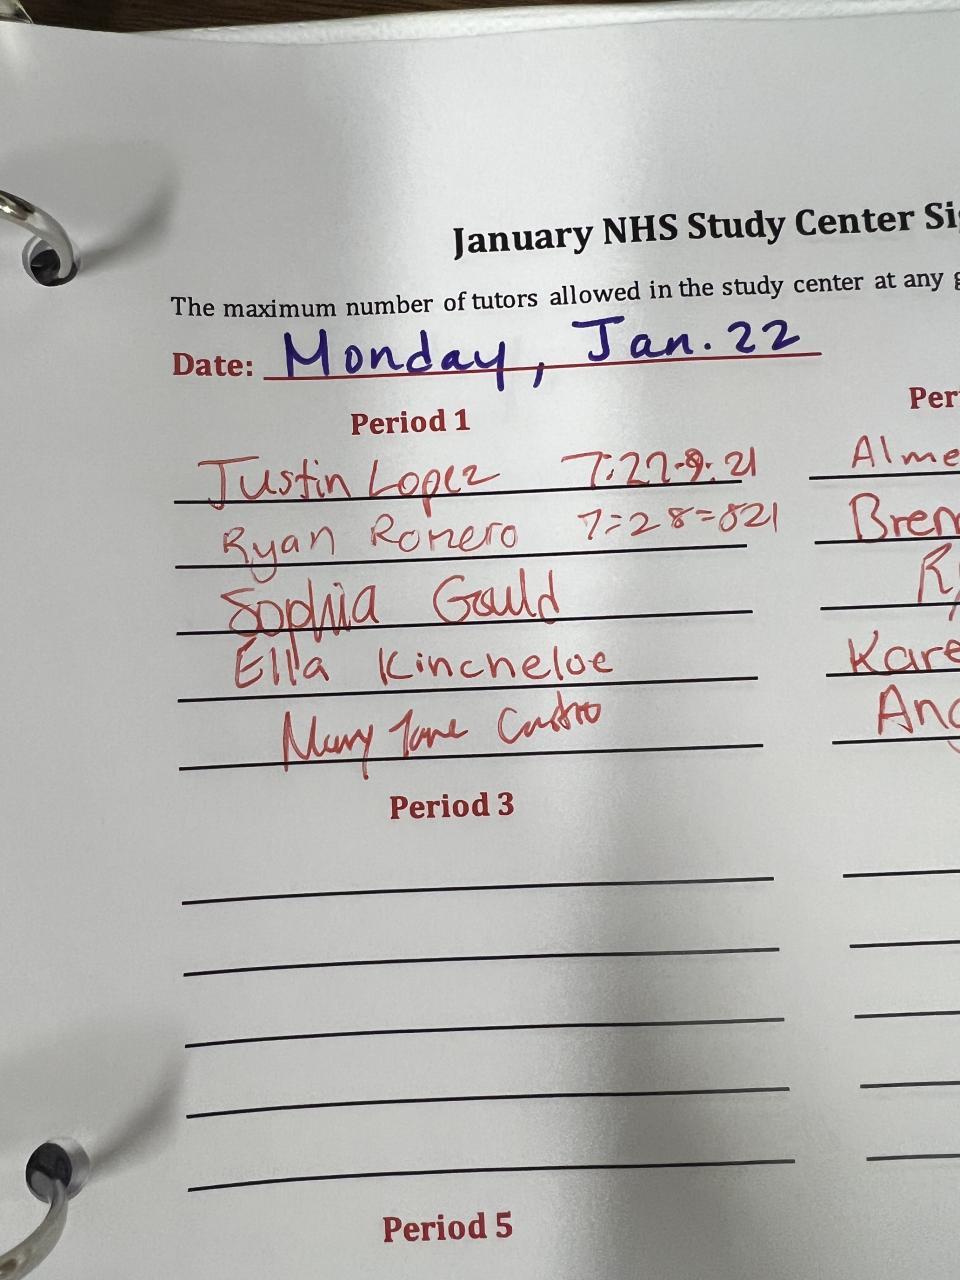 January NHS Study Center Sig
The maximum number of tutors allowed in the study center at any g
Date: Monday, Jan. 22
Period 1
Justin Lopez 7:27-9:21
Ryan Romero 7:28=821
Sophia Gould
Ella Kincheloe
Mary Jane Castro
Per
Alme
Bren
R
Kare
Ang
Period 3
Period 5